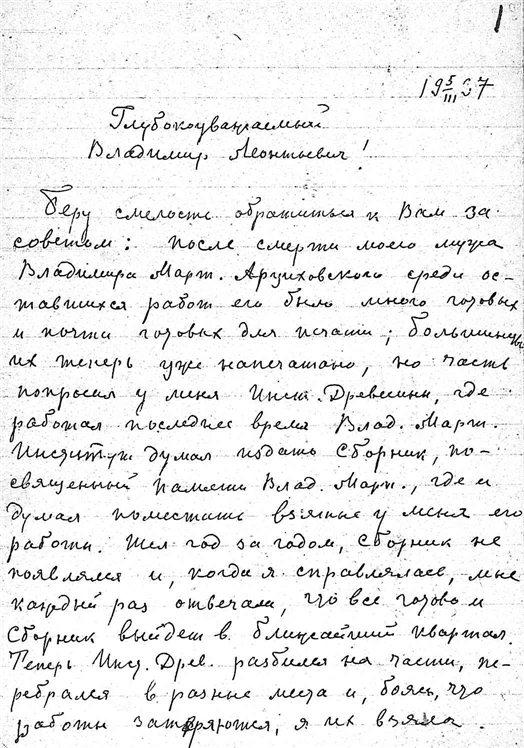 1
19 5/III 37
Глубокоуважаемый
Владимир Леонтьевич!
Беру смелость обратиться к Вам за
советом: после смерти моего мужа
Владимира Март. Арциховского среди ос-
тавшихся работ его было много готовых
и почти готовых для печати; большинство
их теперь уже напечатано, но часть
попросил у меня Инст. Древесины, где
работал последнее время Влад. Март.
Институт думал издать Сборник, по-
священный памяти Влад. Март., где и
думал поместить взятые у меня его
работы. Шел год за годом, Сборник не
появлялся и, когда я справлялась, мне
каждый раз отвечали, что все готово и
Сборник выйдет в ближайший квартал.
Теперь Инст. Древ. разбился на части, пе-
ребрался в разные места и, боясь, что
работы затеряются, я их взяла.